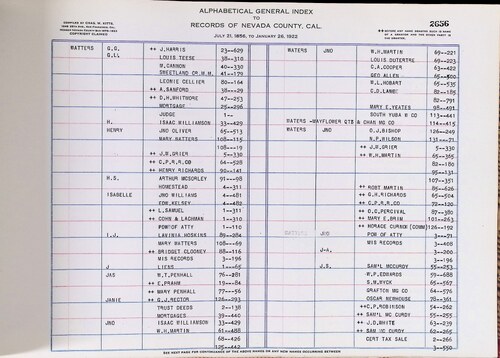 ALPHABETICAL GENERAL INDEX
TO
RECORDS OF NEVADA COUNTY, CAL.
JULY 21, 1856, TO JANUARY 28, 1922
COMPILED BY CHAS. W. KITTS,
COPYRIGHT CLAIMED
2656
WATTERS G.G. ++ J.HARRIS 23--629
G.LL LOUIS TEESE 38--310
M.CANNON 40--330
SWEETLAND CR.M.M. 41--179
LEONIE CELLIER 80--164
++ A.SANFORD 38--29
++ D.H.WHITMORE 47--253
MORTGAGE 25--296
JUDGE 1--
H. ISAAC WILLIAMSON 33--429
HENRY JNO OLIVER 65--513
MARY WATTERS 108--115
108---19
++ J.W.GRIER 5--330
++ C.P.R.R.CO 64--528
++ HENRY RICHARDS 90--141
H.S. ARTHUR MCSORLEY 91---98
HOMESTEAD 4--311
ISABELLE JNO WILLIAMS 4--481
EDW.KELSEY 4--482
++ L.SAMUEL 1--311
++ COHN & LACHMAN 1--310
POW.OF ATTY 1--110
I.J. LAVINIA HOSKINS 89--284
MARY WATTERS 108--69
++ BRIDGET CLOONEY 88--116
MIS RECORDS 3--196
J LIENS 1--65
JAS W.T.PENHALL 76--281
++ E.PRAHM 19--84
++ MARY PENHALL 77--56
JANIE ++ G.J.RECTOR 126--293
TRUST DEEDS 2--138
MORTGAGES 39--440
JNO ISAAC WILLIAMSON 33--429
W.H.MARTIN 61--488
68--426
125--442
WATTERS JNO W.H.MARTIN 69--221
LOUIS DUTERTRE 69--223
C.A.COOPER 63--422
GEO ALLEN 65--500
W.L.HOBART 65--535
C.D.LANE 82--185
82--791
MARY E.YEATES 98--491
SOUTH YUBA W CO 113--441
WATTERS -MAYFLOWER QTZ & CHAN MG CO 114--415
WATTERS JNO D.J.BISHOP 126--249
N.P.WILSON 131---71
++ J.W.GRIER 5--330
++ W.H.MARTIN 65--365
82--180
95--131
107--351
++ ROBT MARTIN 85--626
++ G.H.RICHARDS 65--504
++ C.P.R.R.CO 72--120
++ O.C.PERCIVAL 87--380
++ MARY E.BRIM 101--263
++ HORACE CURNOW [COMM] 126--192
POW OF ATTY 3---71
MIS RECORDS 3--408
J-A. 3--200
3--196
J.S. SAM'L MCCURDY 55--253
W.P.EDWARDS 59--688
S.M.WYCK 65--567
GRAFTON MG CO 64--576
OSCAR NEWHOUSE 78--361
++C.P.ROBINSON 54--262
++ SAM'L MC CURDY 55--255
++ J.D.WHITE 63--239
++ SAM MC CURDY 62--265
CERT TAX SALE 2--266
3--550
SEE NEXT PAGE FOR CONTINUANCE OF THE ABOVE NAMES OR ANY NEW NAMES OCCURRING BETWEEN